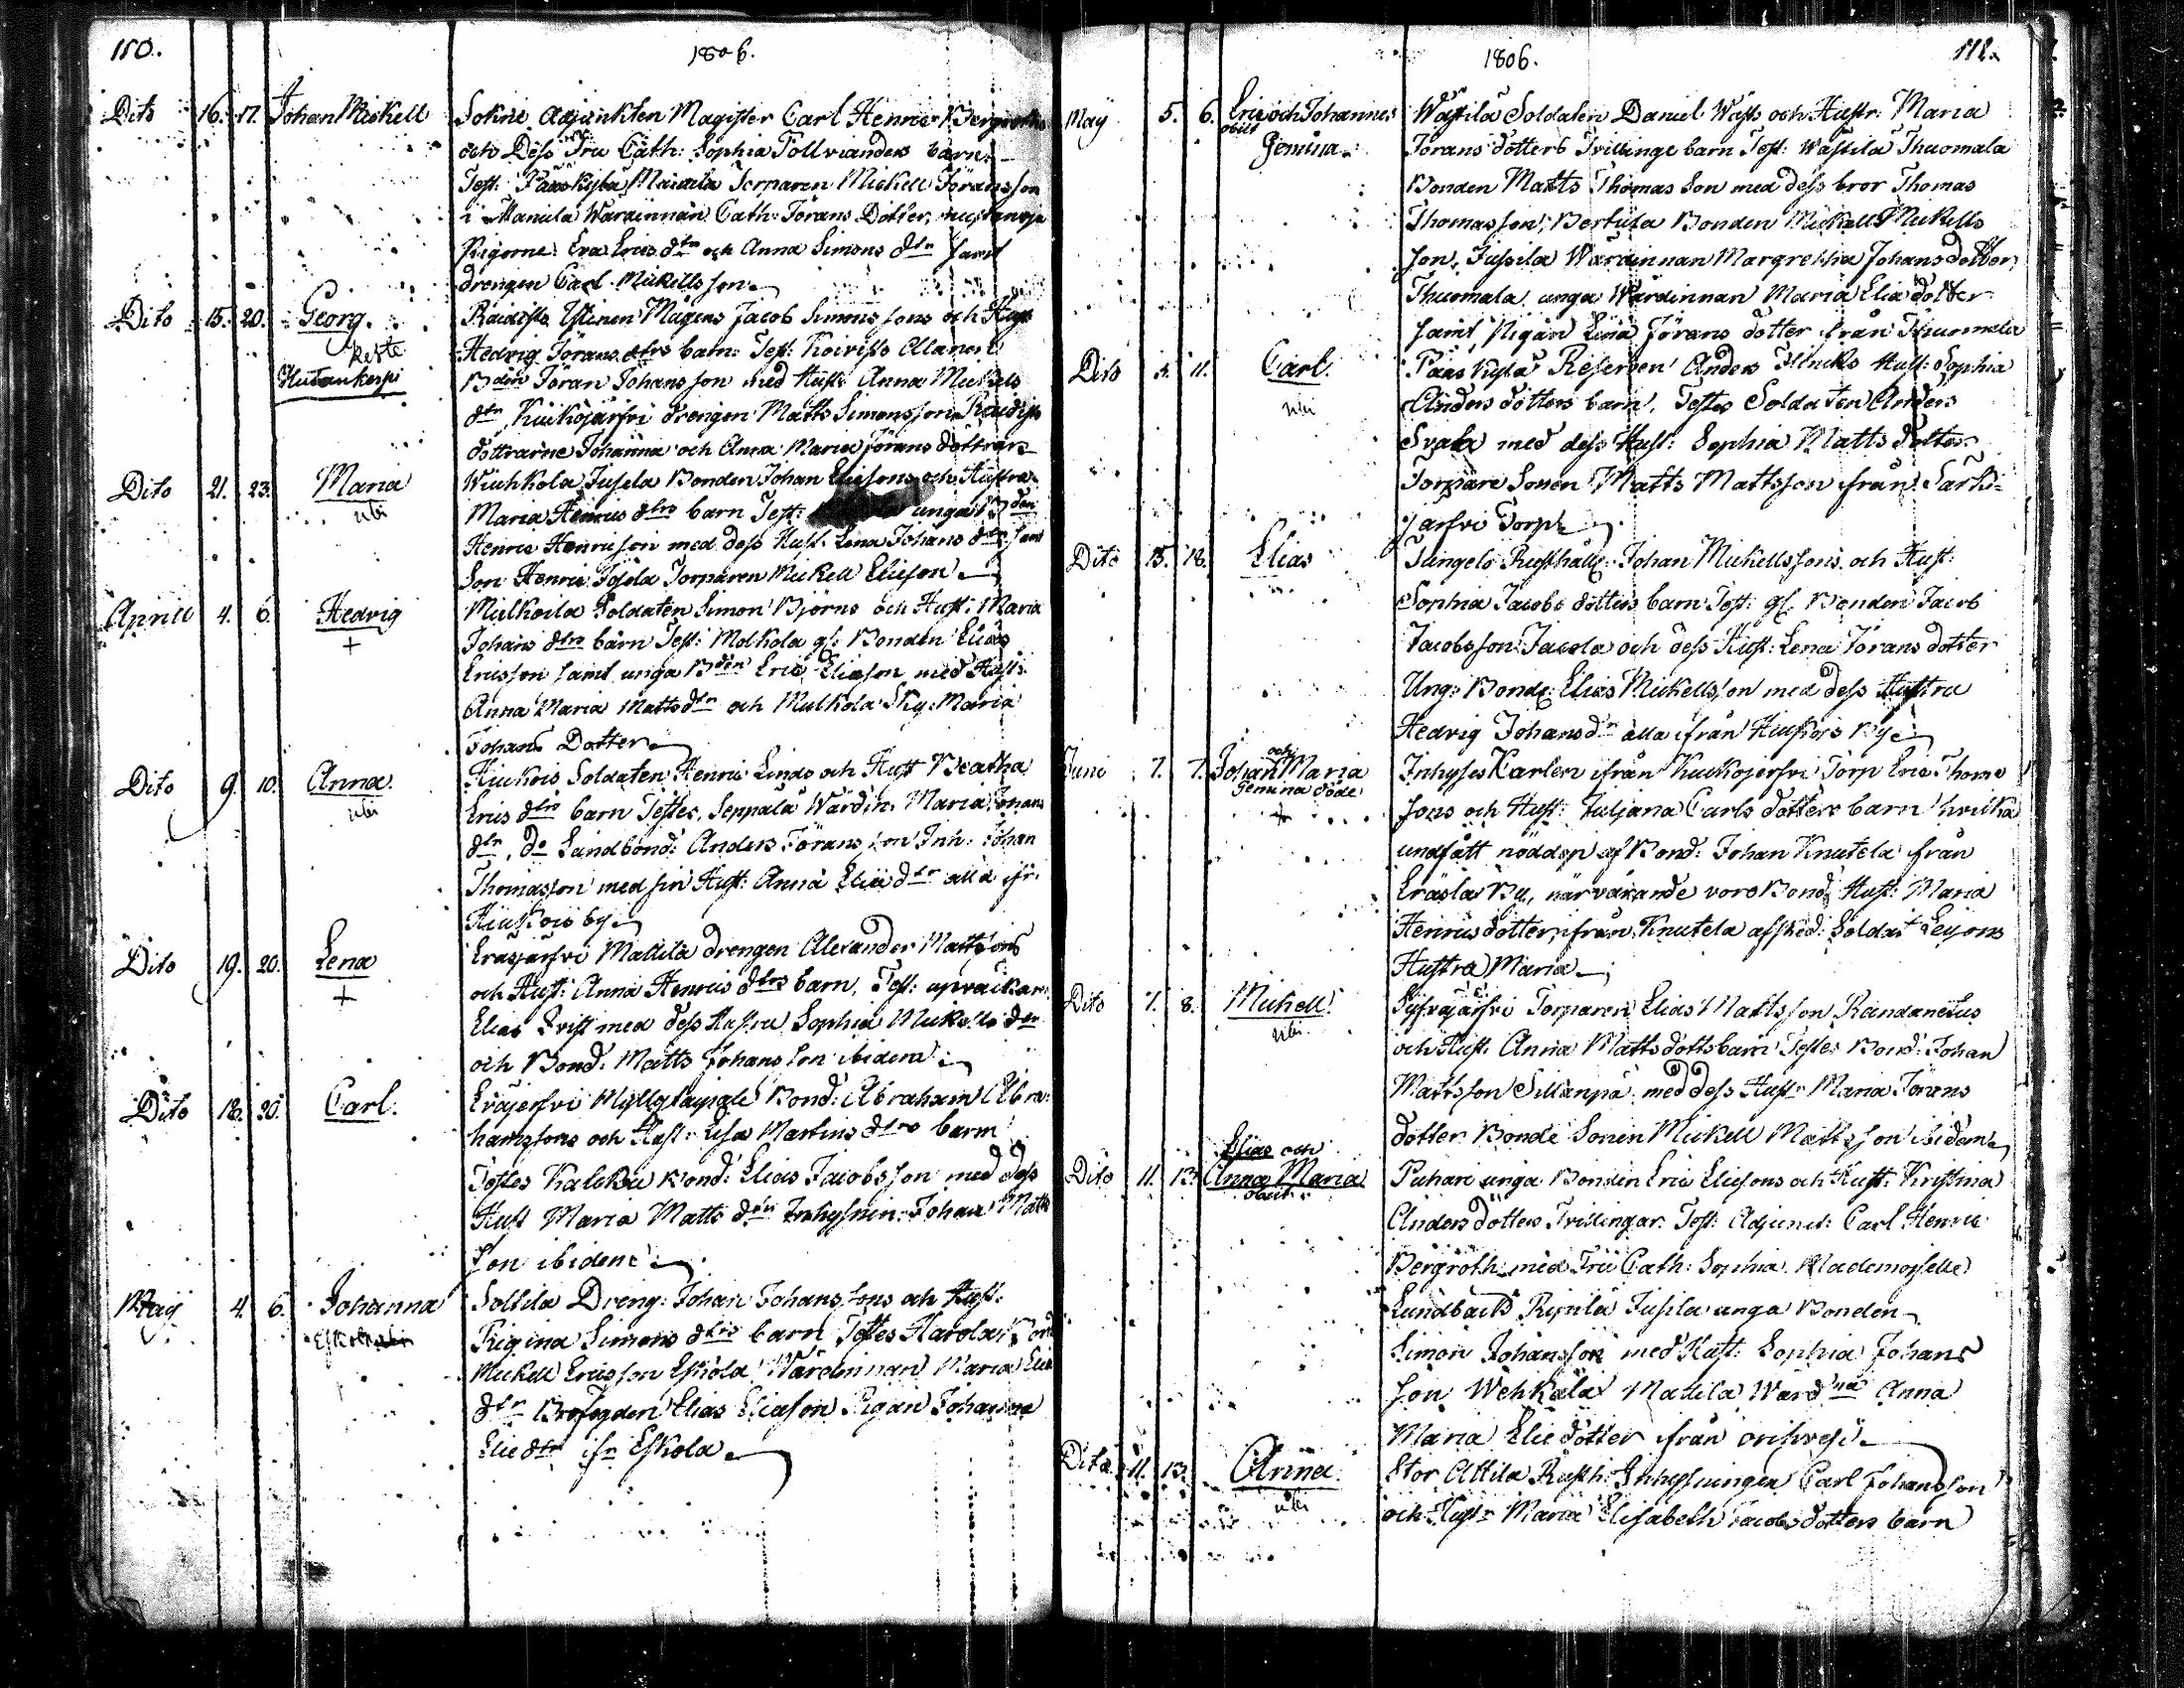 110.
1806.
Dito 16. 17. Johan Mickell Sokne Adjunkten Magister Carl Henric Bergroths
och Dess Fru Cath: Sophia Tollvianders barn.
Test: Paaskyla Mainila Torparen Mickell Jöransson
i Maniila Wärdinnan Cath: Jörans Dotter,
Pigorne Eva Erics dtr och Anna Simons dtr samt
drengen Carl Mickellsson
Dito 15. 20. Georg. Raidisto Ystinen Mågens Jacob Simonssons och Hust
Hedvig Jörans dtrs barn: Test: Koivisto Alanen
Hutankorpi Bden Jöran Johansson med Hustr Anna Mickels
dtr, Kuckojärfvi drengen Matts Simonsson Raidisto
dottrarne Johanna och Anna Maria Jörans döttrar
Dito 21. 23. Maria Wiuhkola Jusela Bonden Johan Eliesons och Hustru
ubi Maria Henrics dtrs barn Test: unga Bden
Henric Henricson med dess Hust: Lena Johans dtr samt
Son Henric Torparen Mickell Elieson
Aprill 4. 6. Hedvig Mulkoila Soldaten Simon Björns och Hust: Maria
+ Johans dtrs barn Test: Molkola gl: Bonden Elias
Ericsson samt unga Bden Eric Eliesson med Hust:
Anna Maria Matts dtr och Mulkola Maria
Johans Dotter
Dito 9. 10. Anna. Hiukois Soldaten Henric Linds och Hust Beatha
ubi Erics dtrs barn Testes. Seppälä Wärdin: Maria Johans
dtr, do Landbond: Anders Jöransson Inh: Johan
Thomasson med sin Hust: Anna Elie dtr alla ifr.
Hiukois by
Dito 19. 20. Lena Eräjärfvi Mattila drengen Alexander Mattsons
+ och Hust: Anna Henrics dtrs barn. Test:
Elias Qvist med dess Hustru Sophia Mickells dtr
och Bond: Matts Johansson ibidem
Dito 18. 20. Carl. Eräjerfvi Bond: Abraham Abra-
hamssons och Hust: Lisa Martins dtrs barn
Testes Kaleku Bond: Elias Jacobsson med dess
Hust Maria Matts dtr Inhysnin: Johan Matts
Son ibidem
May 4. 6. Johanna Soltila Dreng: Johan Johanssons och Hust:
Rigina Simons dtrs barn Testes Harola Bond
Mickell Ericsson Eskola Wärdinnan Maria Elie
dtr Brofogden Elias Eliesson Pigan Johanna
Elie dtr ifr Eskola
112.
1806.
May 5. 6. Eric och Johannes Wästilä Soldaten Daniel Wass och Hustr: Maria
obiit Gemina Jörans dotters Trillinge barn Test: Wästilä Thuomala
Bonden Matts Thomas Son med dess bror Thomas
Thomasson, Bertula Bonden Mickell Mickells
Son, Jussila Wärdinnan Margretha Johansdotter
Thuomala unga Wärdinnan Maria Elia dotter
samt Pigan Lena Jörans dotter från Thuomala
Dito 5. 11. Carl. Pääskylä Reserven Anders Hust: Sophia
ubi Anders dotters barn. Testes Soldaten Anders
Svala med dess Hust: Sophia Matts dotter
Torpare Sonen Matts Mattsson från Särki-
järfvi Torp
Dito 15. 18. Elias Rusthåll: Johan Mickellssons och Hust:
Sophia Jacobs dotters barn Test: gl. Bonden Jacob
Jacobsson Jacola och dess Hust: Lena Jörans dotter
Ung: Bond: Elias Mickellsson med dess Hustru
Hedvig Johansdr alla ifrån Hiukois By
Juni 7. 7. Johan och Maria Inhyses Karlen ifrån Kuckojerfvi Torp Eric Thome
Gemina döde sons och Hust: Juliana Carls dotters barn hvilka
+ undfått nöddop af Bond: Johan Knutela från
Eräsla By, närvarande voro Bond: Hust: Maria
Henrics dotter, ifrån Knutela afsked: Soldat Leijons
Hustru Maria
Dito 7. 8. Mickell Torparen Elias Mattsson Randanetus
ubi och Hust. Anna Mattsdotts barn Testes Bond: Johan
Mattsson Sillanpä med dess Hust: Maria Jörans
dotter Bonde Sonen Mickell Mattsson ibidem
Dito 11. 13. Elias och Anna Maria Puhari unga Bonden Eric Eliesons och Hust: Kristina
obiit Anders dotters Trillingar. Test: Adjunct: Carl Henric
Bergroth med Fru Cath: Sophia Mademoiselle
Lundbäck Jussila unga Bonden
Simon Johansson med Hust: Sophia Johans
Son Wehkala Mattila Wärdna Anna
Maria Elie dotter från orihvesi
Dito 11. 13. Anna Stor Attila Rusth: Inhysningen Carl Johansson
ubi och Hustr Maria Elisabeth Jacobs dotters barn